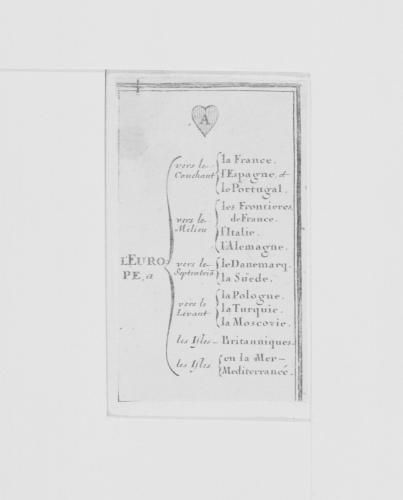 A
vers le la France.
Couchant l'Espagne et
le Portugal.
les Frontieres
vers le de France.
Milieu l'Italie.
l'Alemagne.
L'EURO vers le le Danemarq.
PE, a Septentriõ la Suede.
la Pologne.
vers le la Turquie.
Levant la Moscovie.
les Isles - Britanniques.
les Isles en la Mer-
Mediterrancé.